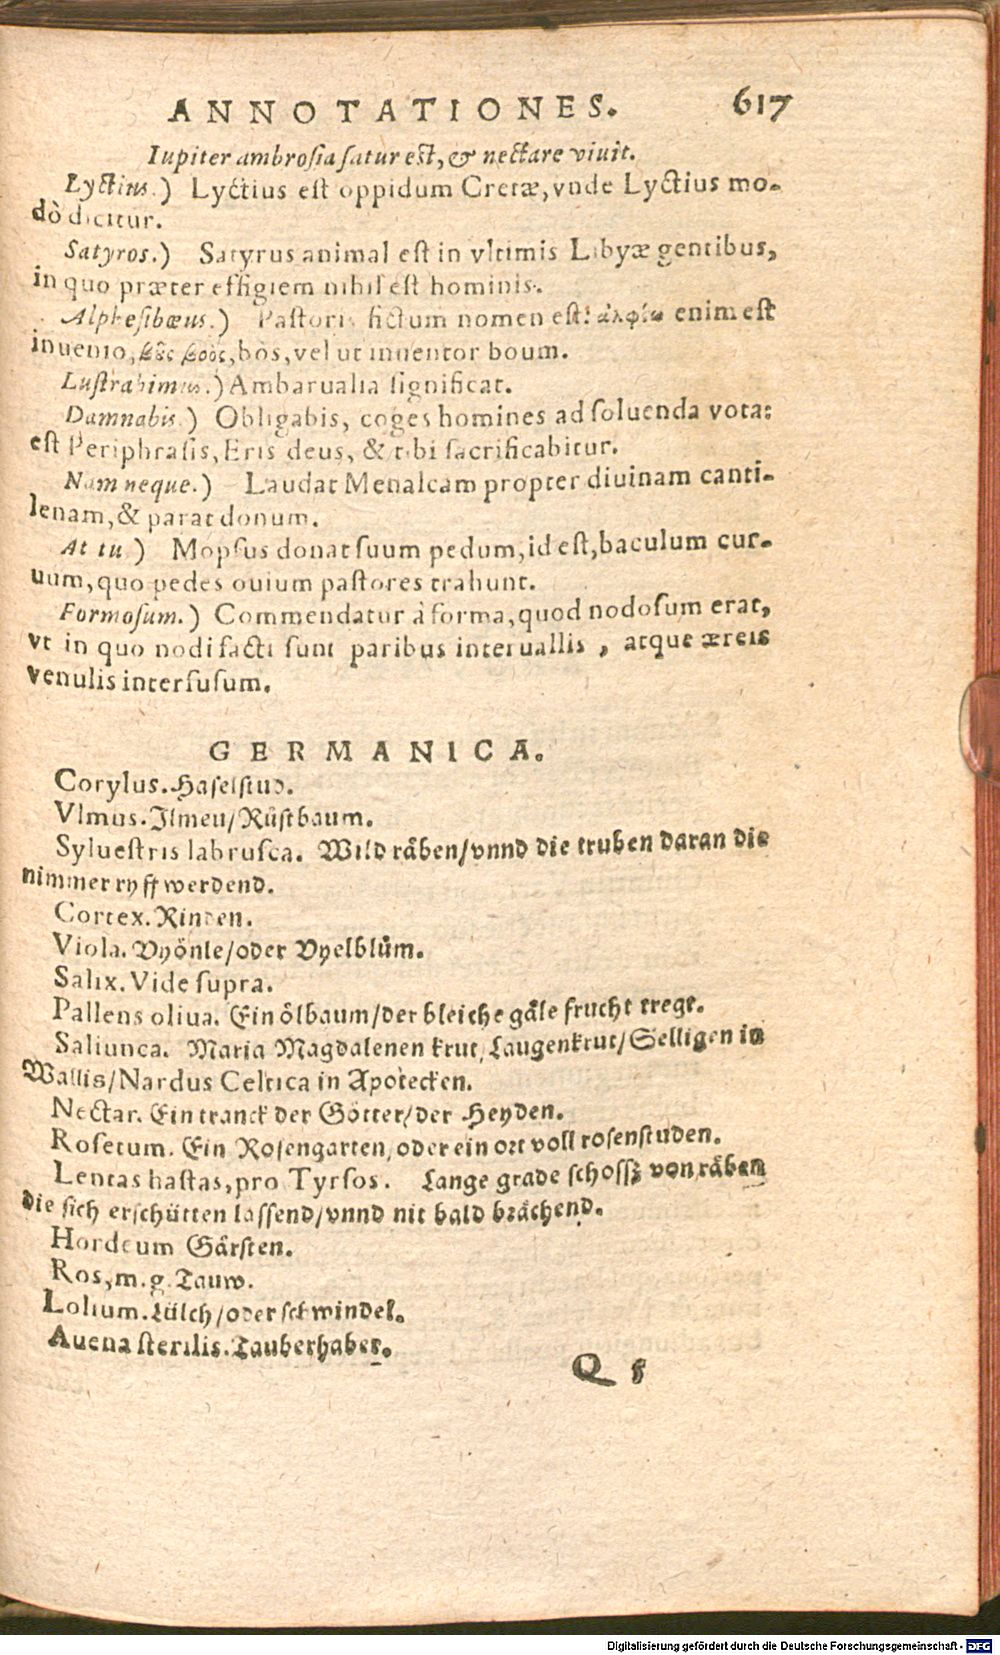 ANNOTATIONES. 617
Iupiter ambrosia satur est, & nectare viuit.
Lyctius.) Lyctius est oppidum Cretæ, vnde Lyctius mo-
dò dicitur.
Satyros.) Satyrus animal est in vltimis Libyæ gentibus,
in quo præter effigiem nihil est hominis.
Alphesibœus.) Pastoris fictum nomen est: ἀλφίω enim est
inuenio, βοῦς βοὸς, bos, vel ut inuentor boum.
Lustrabimus.) Ambarualia significat.
Damnabis.) Obligabis, coges homines ad soluenda vota:
est Periphrasis, Eris deus, & tibi sacrificabitur.
Nam neque.) Laudat Menalcam propter diuinam canti-
lenam, & parat donum.
At tu) Mopsus donat suum pedum, id est, baculum cur-
uum, quo pedes ouium pastores trahunt.
Formosum.) Commendatur à forma, quod nodosum erat,
vt in quo nodi facti sunt paribus interuallis, atque æreis
venulis intersusum.
GERMANICA.
Corylus. Haselstud.
Vlmus. Ilmen/Růstbaum.
Syluestris labrusca. Wild råben/vnnd die truben daran die
nimmer ryff werdend.
Cortex. Rinden.
Viola. Vyönle/oder Vyelblům.
Salix. Vide supra.
Pallens oliua. Ein ölbaum/der bleiche gäle frucht tregt.
Saliunca. Maria Magdalenen krut, Laugenkrut/Selligen in
Wallis/Nardus Celtica in Apotecken.
Nectar. Ein tranck der Götter/der Heyden.
Rosetum. Ein Rosengarten, oder ein ort voll rosenstuden.
Lentas hastas, pro Tyrsos. Lange grade schossz von råben
die sich erschütten lassend/vnnd nit bald brächend.
Hordeum Gårsten.
Ros, m. g. Tauw.
Lolium. Lülch/oder schwindel.
Auena sterilis. Tauberhaber.
Q 5
Digitalisierung gefördert durch die Deutsche Forschungsgemeinschaft - DFG